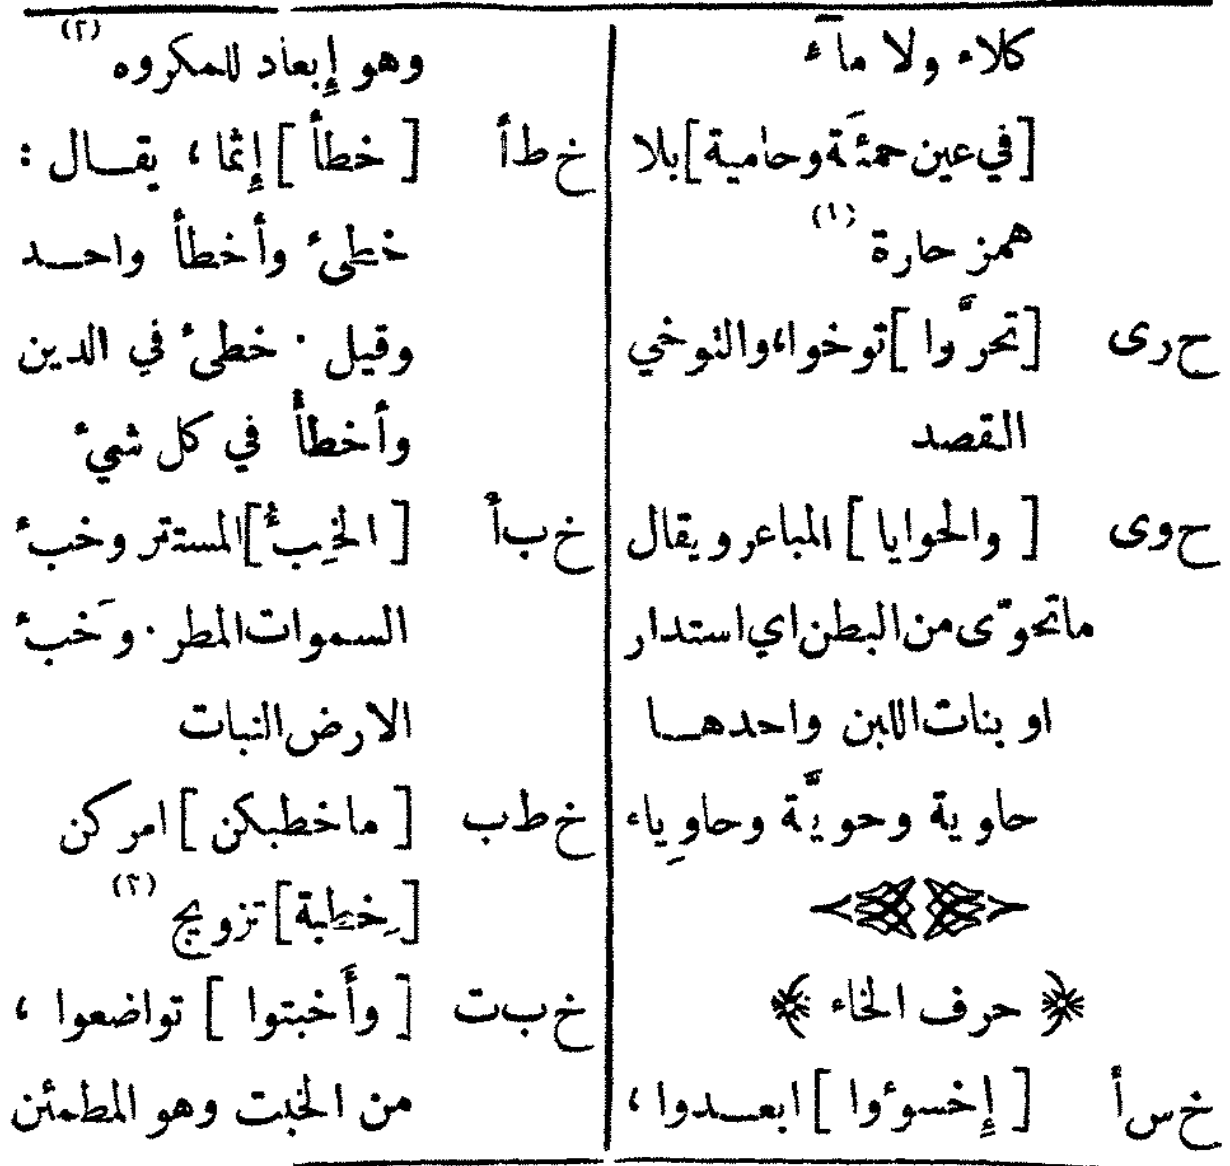 كلاء ولا مآء
[في عين حمئَة وحامية] بلا
همز حارة (١)
ح رى [تحرَّوا] توخوا، والتوخي
القصد
ح وى [والحوايا] المباعر ويقال
ماتحوّى من البطن اي استدار
او بنات اللبن واحدهـا
حاوية وحويَّة وحاوِياء
﴿ حرف الخاء ﴾
خ س أ [إِخسوءوا] ابعــدوا ،
وهو إِبعاد للمكروه (٢)
خ ط أ [خطأً] إِثمًا ، يقــال :
خطِئ وأخطأ واحــد
وقيل · خطئ في الدين
وأخطأ في كل شيء
خ ب أ [الخِبءُ] المستتر وخبء
السموات المطر · وَخبء
الارض النبات
خ ط ب [ماخطبكن] امركن
[خِطبة] تزويج (٣)
خ ب ت [وأَخبتوا] تواضعوا ،
من الخبت وهو المطمئن